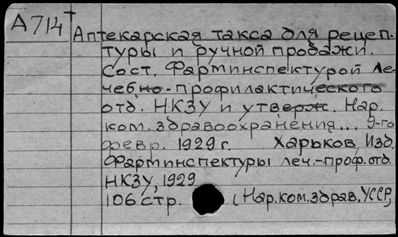 А714
Аптекарская такса для рецеп-
туры и ручной продажи.
Сост. Фарминспектурой Ле-
чебно-профилактического
отд. НКЗУ и утверж. Нар.
ком. здравоохранения... 9-го
февр. 1929 г. Харьков, Изд.
Фарминспектуры леч.-проф. отд.
НКЗУ, 1929
106 стр. (Нар.ком.здрав.УССР,